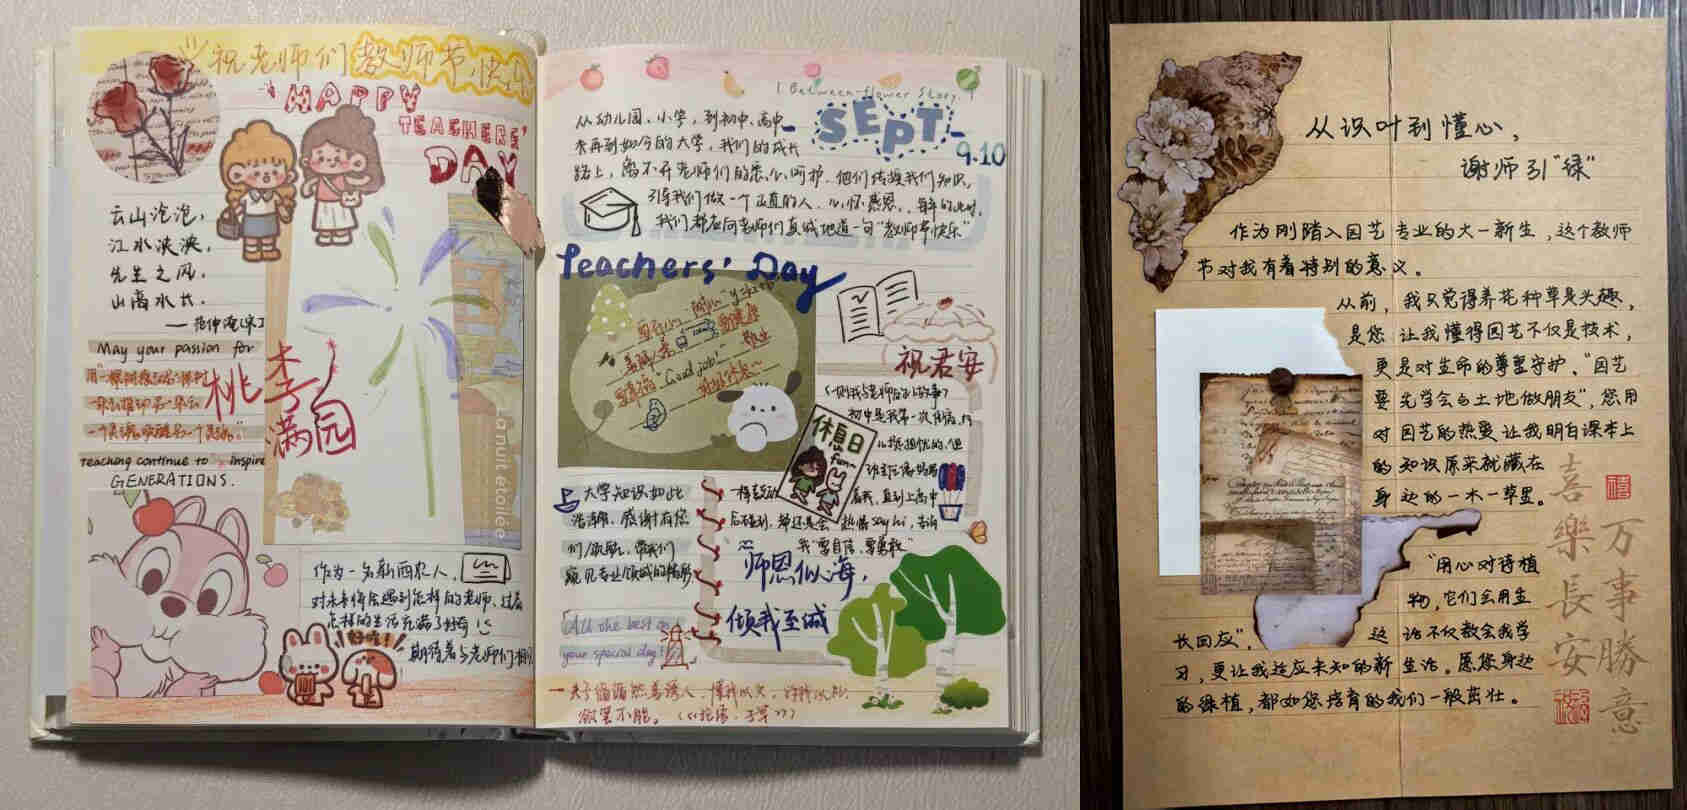 祝老师们教师节快乐
HAPPY
TEACHERS'
DAY
云山沧沧,
江水泱泱,
先生之风,
山高水长.
May your passion for
桃李
满园
teaching continue to inspire
GENERATIONS.
La nuit étoilée
作为一名新西农人,
对未来将会遇到怎样的老师、过着
怎样的生活充满了好奇
期待着与老师们相
[ Between-flower Story. ]
SEPT
9.10
从幼儿园、小学,到初中、高中
来再到如今的大学,我们的成长
路上,离不开老师们的悉心呵护.他们传授我们知识,
引导我们做一个正直的人,心怀感恩,每年的此时,
我们都应向老师们真诚地道一句“教师节快乐”
Teachers' Day
"Good job!"
祝君安
初中是我第一次住宿,
休息日
fun
大学知识如此
浩瀚,感谢有您
们领航,带我们
窥见专业领域的精彩
看我,直到上高中
后碰到,都还是会热情say hi,告诉
我“要自信,要勇敢”
师恩似海,
倾我至诚
All the best on
your special day!
夫子循循然善诱人,博我以文,约我以礼,
欲罢不能。(《论语·子罕》)
从识叶到懂心,
谢师引“绿”
作为刚踏入园艺专业的大一新生,这个教师
节对我有着特别的意义。
从前,我只觉得养花种草是兴趣,
是您让我懂得园艺不仅是技术,
更是对生命的尊重守护.“园艺
要先学会与土地做朋友”,您用
对园艺的热爱让我明白课本上
的知识原来就藏在
身边的一木一草里。
“用心对待植
物,它们会用生
长回应”,这话不仅教会我学
习,更让我适应未知的新生活。愿您身边
的绿植,都如您培育的我们一般茁壮。
喜樂長安
万事勝意